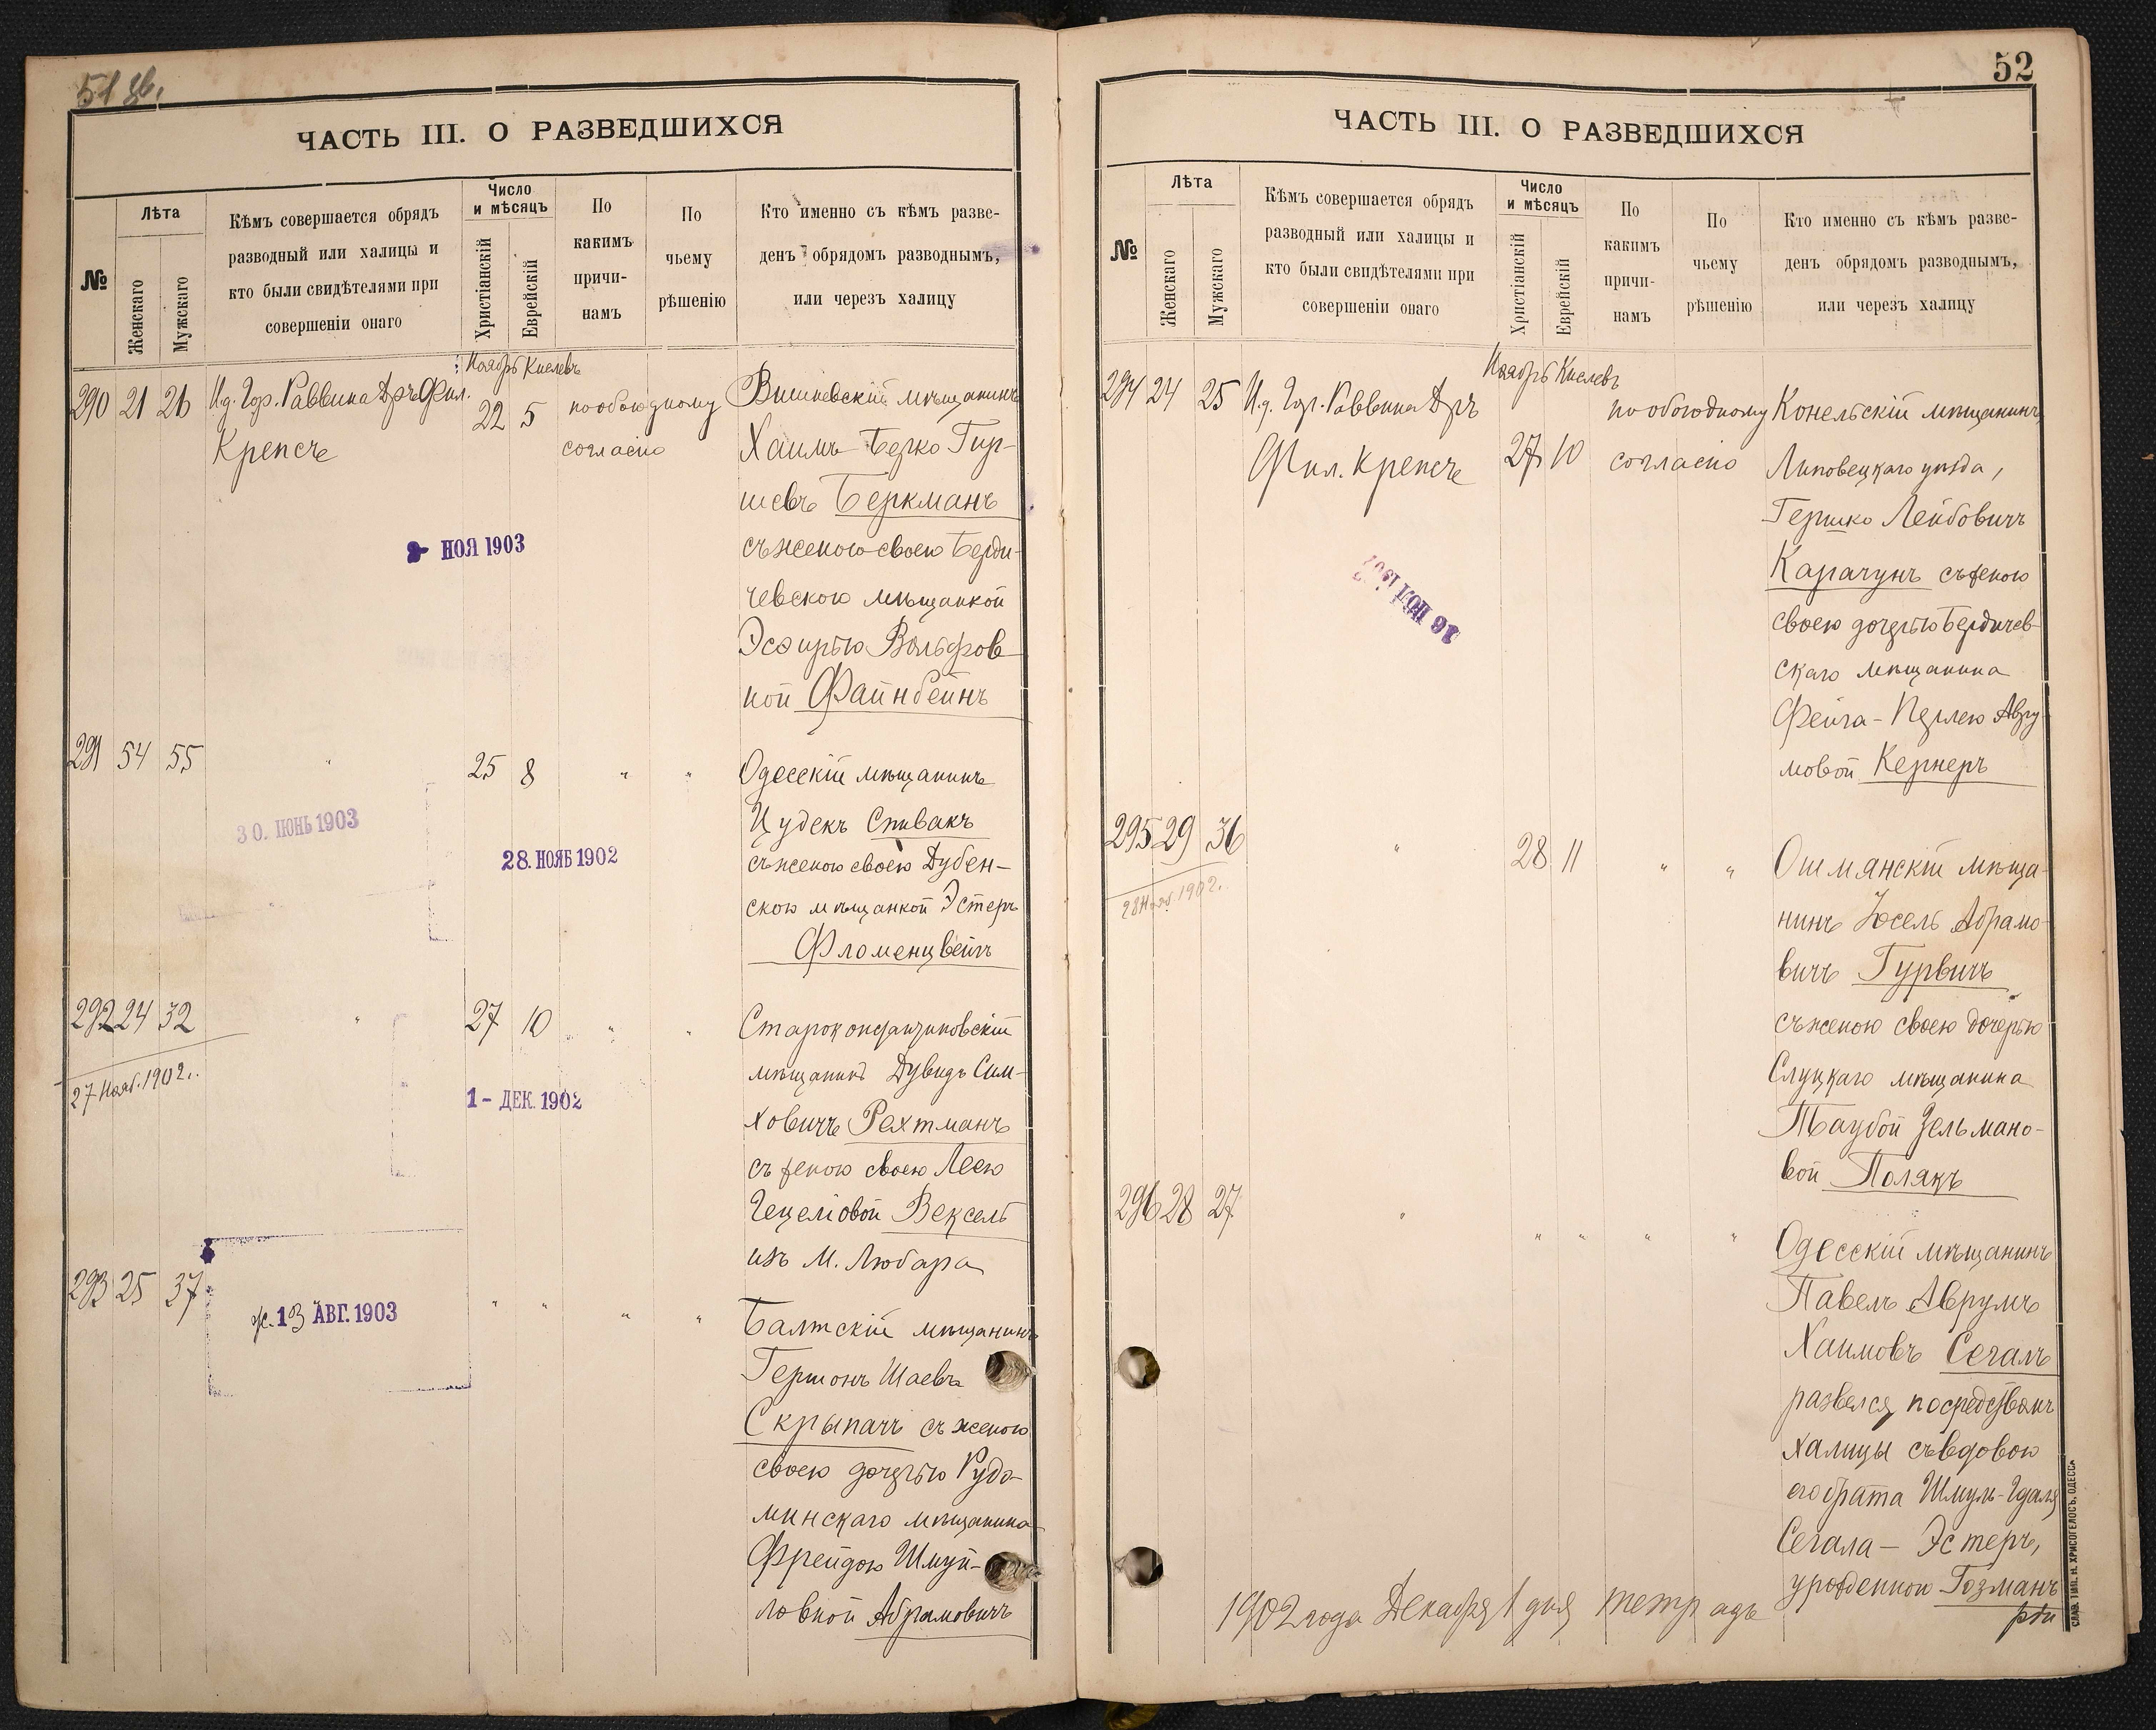 51 об.
ЧАСТЬ III. О РАЗВЕДШИХСЯ
№
Лѣта
Женскаго
Мужскаго
Кѣмъ совершается обрядъ
разводный или халицы и
кто были свидѣтелями при
совершеніи онаго
Число
и мѣсяцъ
Христіанскій
Еврейскій
По
какимъ
причи-
намъ
По
чьему
рѣшенію
Кто именно съ кѣмъ разве-
денъ обрядомъ разводнымъ,
или черезъ халицу
Ноябрь Кислевъ
290 21 26 И.д. Гор. Раввина Д-ръ Фил. 22 5 по обоюдному Вишневскій мѣщанинъ
Крепсъ согласію Хаимъ Берко Гир-
шевъ Беркманъ
2- НОЯ 1903
съ женою своею Берди-
чевскою мѣщанкой
Эсѳирью Вольфов
ной Файнбейнъ
291 54 55 " 25 8 " " Одесскій мѣщанинъ
Цудекъ Спивакъ
30. ІЮНЬ 1903
28. НОЯБ 1902
съ женою своею Дубен-
скою мѣщанкой Эстеръ
Фломенцвейгъ
292 24 32 " 27 10 " " Староконстантиновскій
27 Нояб. 1902.
мѣщанинъ Дувидъ Сим-
1- ДЕК. 1902
ховичъ Рехтманъ
съ женою своею Леею
Гецелiовой Вексель
изъ М. Любара
293 25 37 " " " " " Балтскій мѣщанинъ
13 АВГ. 1903
Гершонъ Шаевъ
Скрыпачъ съ женою
своею дочерью Рудо-
минскаго мѣщанина
Фрейдою Шмуй-
ловной Абрамовичъ
52
ЧАСТЬ III. О РАЗВЕДШИХСЯ
№
Лѣта
Женскаго
Мужскаго
Кѣмъ совершается обрядъ
разводный или халицы и
кто были свидѣтелями при
совершеніи онаго
Число
и мѣсяцъ
Христіанскій
Еврейскій
По
какимъ
причи-
намъ
По
чьему
рѣшенію
Кто именно съ кѣмъ разве-
денъ обрядомъ разводнымъ,
или черезъ халицу
Ноябрь Кислевъ
294 24 25 И.д. Гор. Раввина Д-ръ по обоюдному Конельскій мѣщанинъ,
Фил. Крепсъ 27 10 согласію Липовецкаго уѣзда,
Гершко Лейбовичъ
Карачунъ съ женою
своею дочерью Бердичев-
скаго мѣщанина
Фейга-Перлею Авру-
мовой Кернеръ
295 29 36 " 28 11 " " Ошмянскій мѣща-
28 Нояб. 1902.
нинъ Іосель Абрамо-
вичъ Гурвичъ
съ женою своею дочерью
Слуцкаго мѣщанина
Таубой Зельмано-
вой Полякъ
296 28 27 " " " " " Одесскій мѣщанинъ
Павелъ Аврумъ
Хаимовъ Сегалъ
развелся посредствомъ
халицы съ вдовою
его брата Шмуль-Гдаля
Сегала — Эстеръ,
урожденной Гозманъ
1902 года Декабря 1 дня тетрадь
СЛАВ. ТИП. Н. ХРИСОГЕЛОСЪ, ОДЕССА